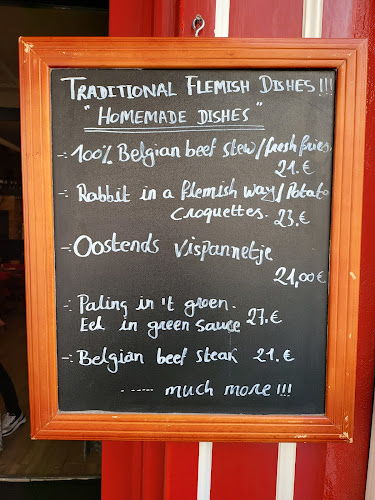 TRADITIONAL FLEMISH DISHES!!!
"HOMEMADE DISHES"
-: 100% Belgian beef stew/fresh fries.
21.€
-: Rabbit in a flemish way/Potato
croquettes. 23.€
-: Oostends vispannetje
21,00€
-: Paling in 't groen.
Eel in green sauce 27.€
-: Belgian beef steak 21.€
...... much more!!!